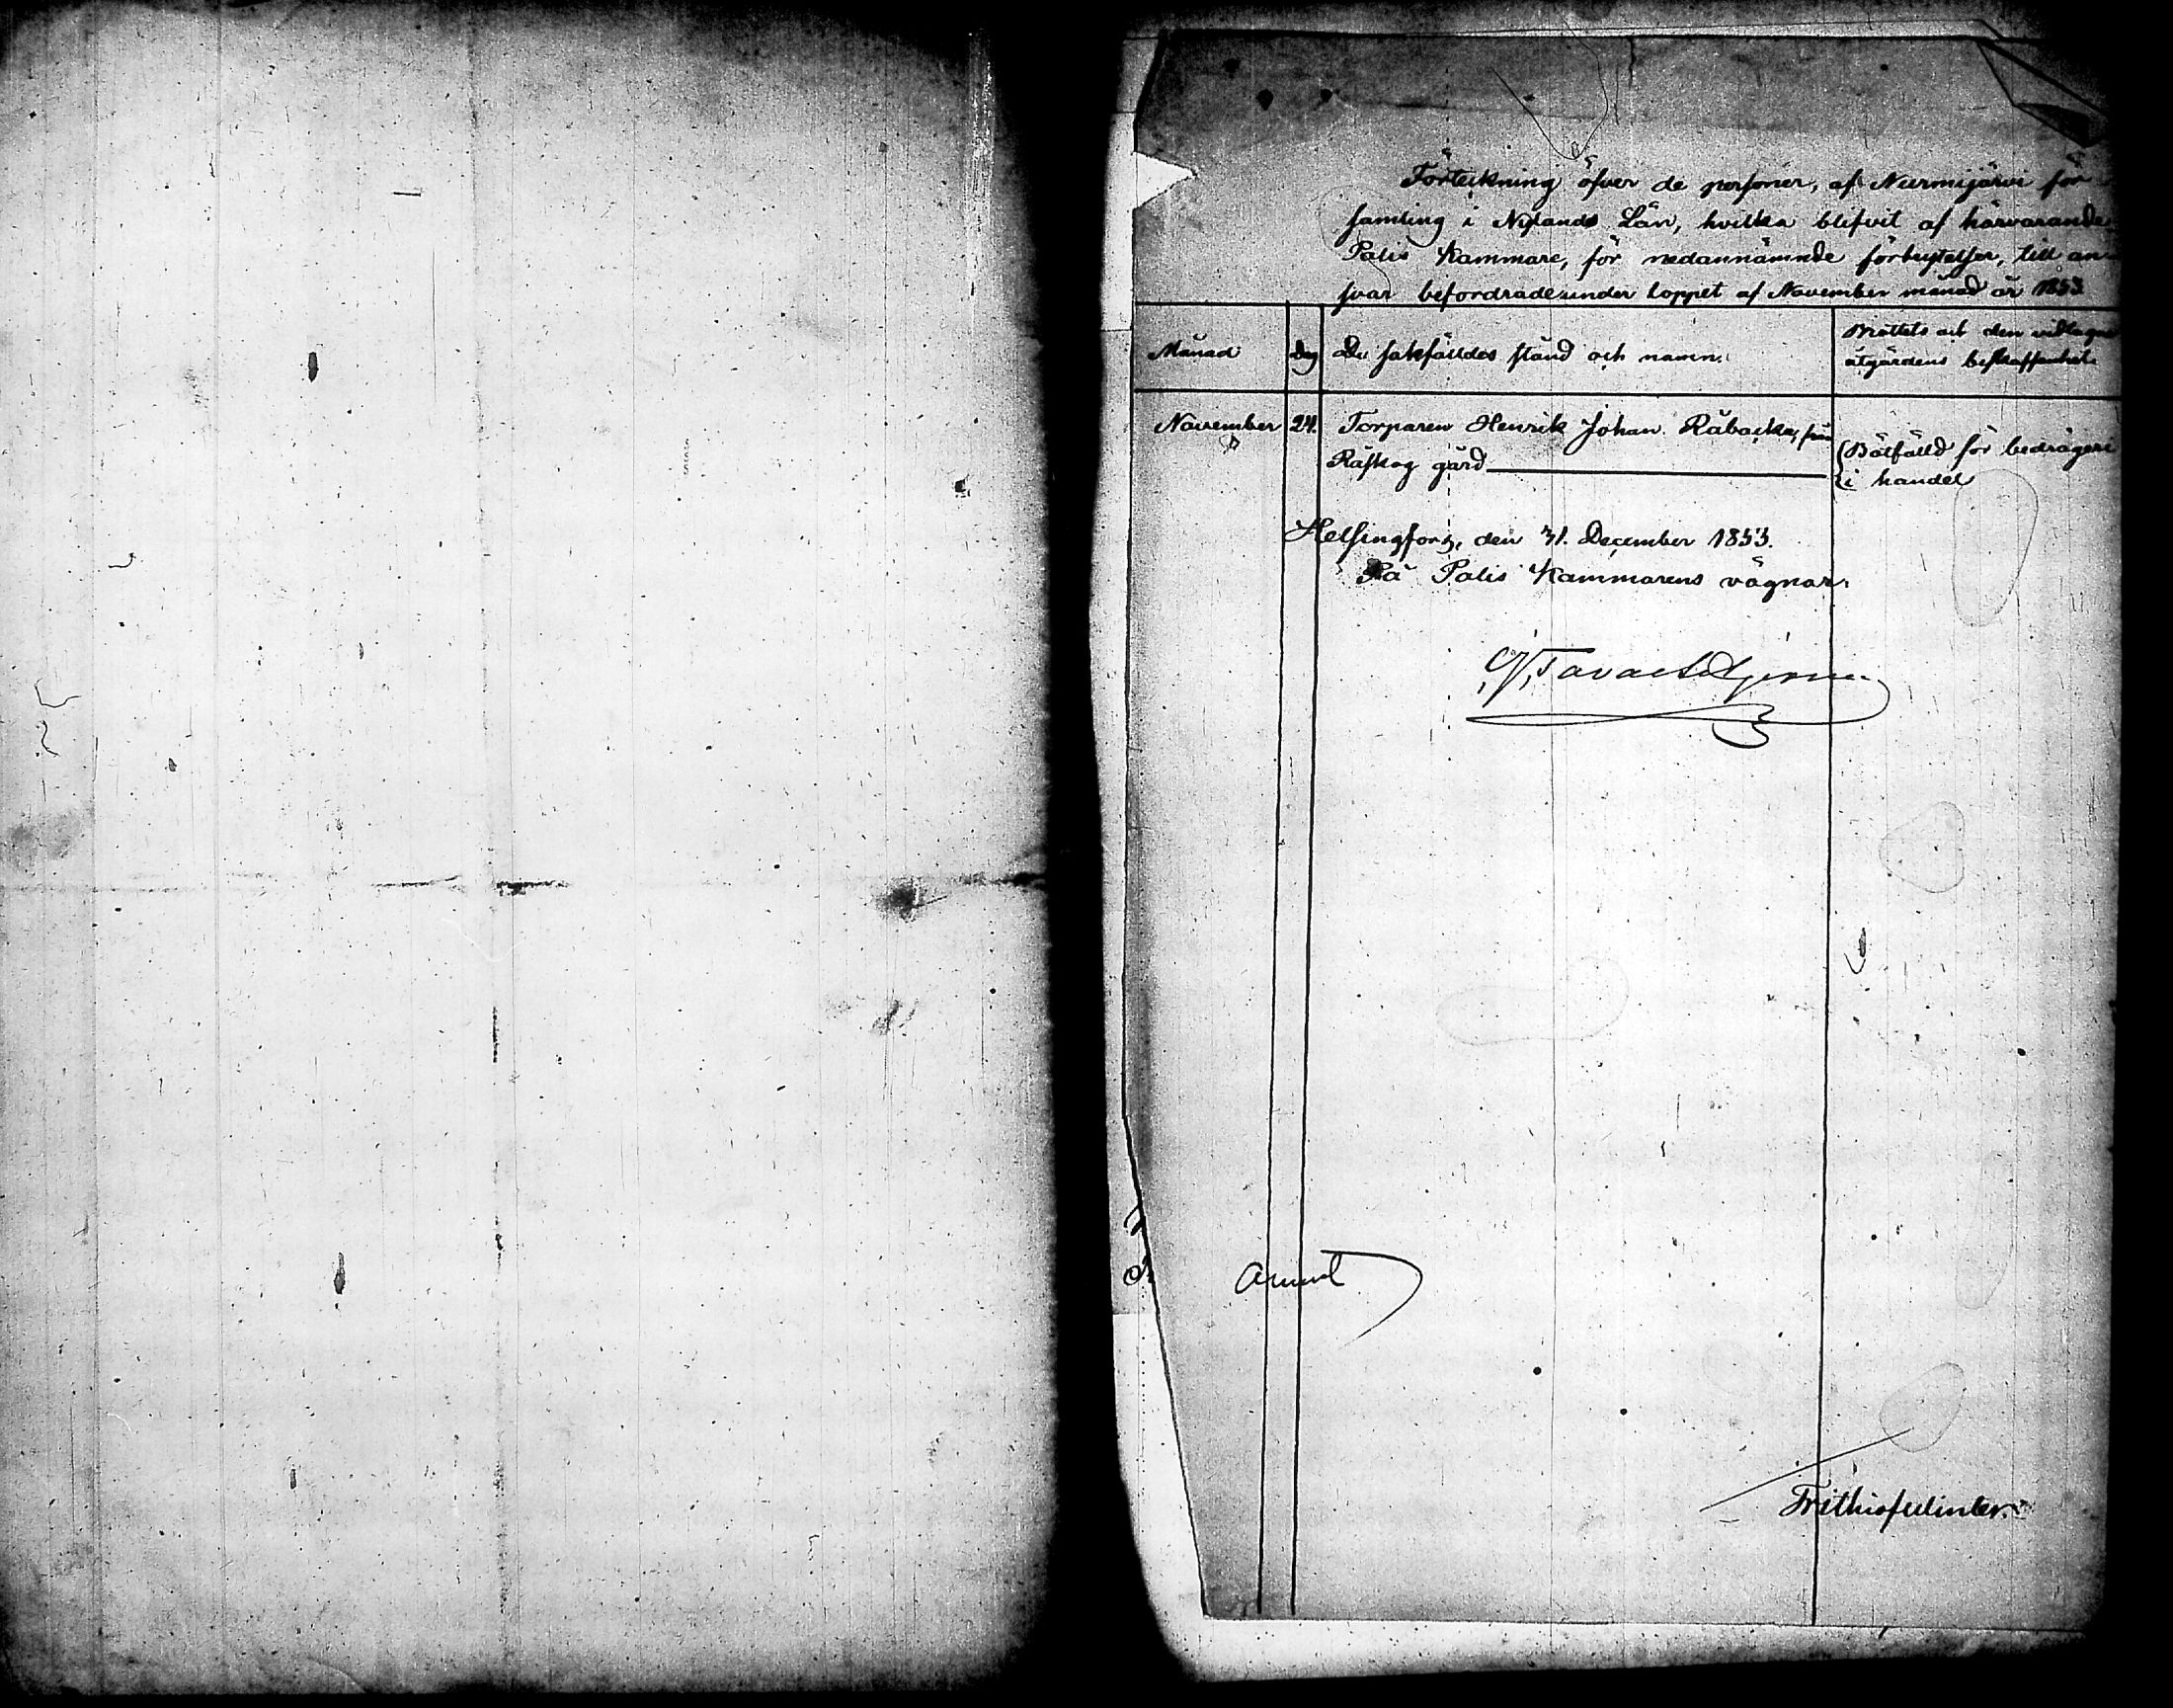 Förteckning öfver de personer, af Nurmijärvi för-
samling i Nylands Län, hvilka blifvit af härvarande
Polis Kammare, för nedannämnde förbrytelser, till an-
svar befordrade under loppet af November månad år 1853
Månad Dag De sakfälldes stånd och namn. Brottets och den vidtagna
åtgärdens beskaffenhet.
November 24. Torparen Henrik Johan Råbacka, från
Råskog gård Bötfälld för bedrägeri
i handel
Helsingfors, den 31. December 1853.
På Polis Kammarens vägnar: